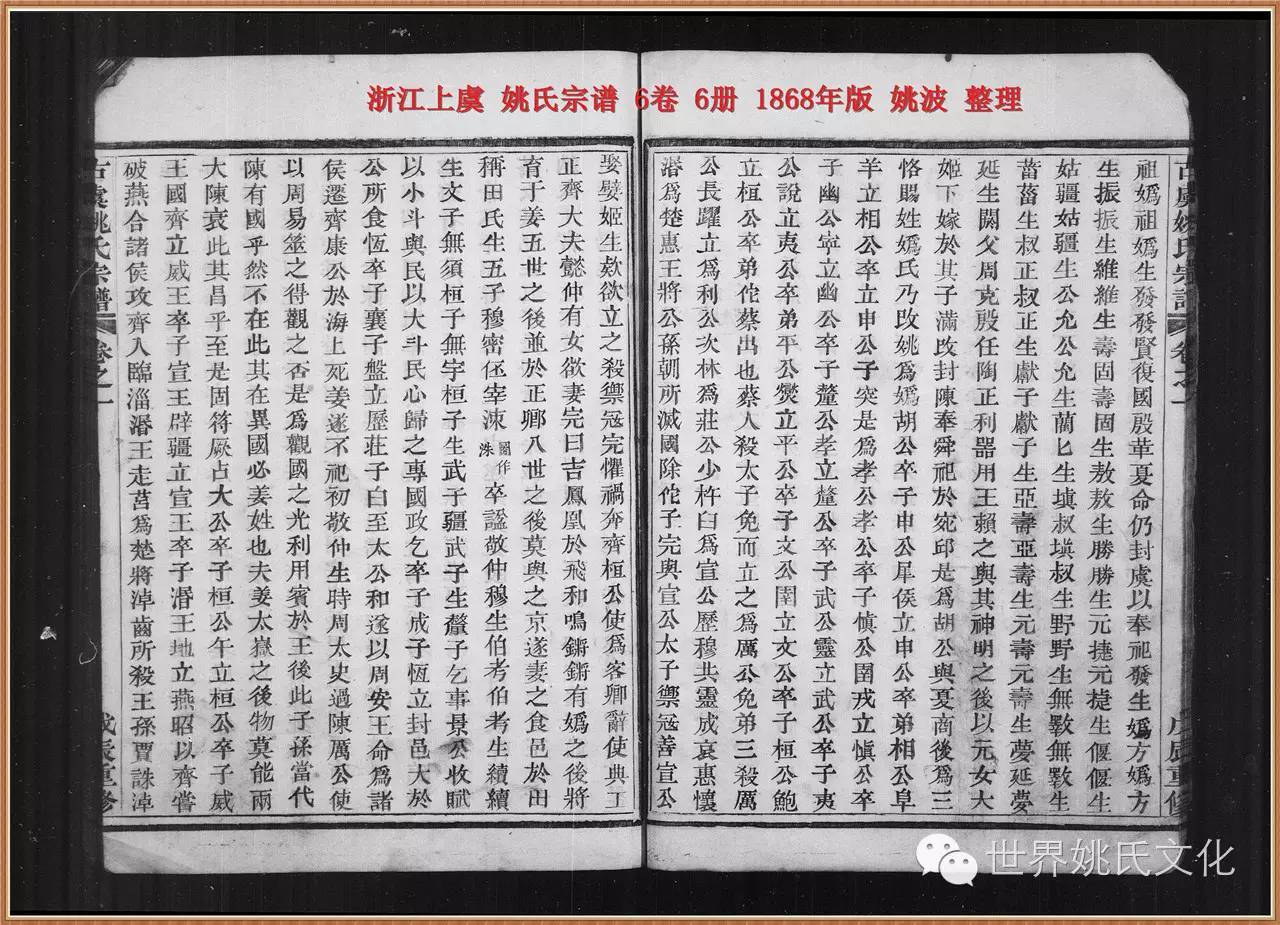 浙江上虞 姚氏宗谱 6卷 6册 1868年版 姚波 整理
祖嬀祖嬀生發發賢復國殷革夏命仍封虞以奉祀發生嬀方嬀方
生振振生維維生壽固壽固生敖敖生勝勝生元捷元捷生偃偃生
姑疆姑疆生公允公允生蘭匕生塡叔塡叔生野野生無斁無斁生
蕾蕾生叔正叔正生獻子獻子生亞壽亞壽生元壽元壽生夢延夢
延生閼父周克殷任陶正利器用王賴之與其神明之後以元女大
姬下嫁於其子滿改封陳奉舜祀於宛邱是爲胡公與夏商後爲三
恪賜姓嬀氏乃改姚爲嬀胡公卒子申公犀侯立申公卒弟相公臯
羊立相公卒立申公子突是爲孝公孝公卒子愼公圉戎立愼公卒
子幽公寧立幽公卒子釐公孝立釐公卒子武公靈立武公卒子夷
公說立夷公卒弟平公爕立平公卒子文公圍立文公卒子桓公鮑
立桓公卒弟佗蔡出也蔡人殺太子免而立之爲厲公免弟三殺厲
公長躍立爲利公次林爲莊公少杵臼爲宣公歷穆共靈成哀惠懷
湣爲楚惠王將公孫朝所滅國除佗子完與宣公太子禦寇善宣公
娶嬖姬生欵欲立之殺禦寇完懼禍奔齊桓公使爲客卿辭使典工
正齊大夫懿仲有女欲妻完曰吉鳳凰於飛和鳴鏘鏘有嬀之後將
育于姜五世之後並於正卿八世之後莫與之京遂妻之食邑於田
稱田氏生五子穆密伾宰涑 閣作洙 卒諡敬仲穆生伯考伯考生續續
生文子無須桓子無宇桓子生武子疆武子生釐子乞事景公收賦
以小斗與民以大斗民心歸之專國政乞卒子成子恆立封邑大於
公所食恆卒子襄子盤立歷莊子白至太公和遂以周安王命爲諸
侯遷齊康公於海上死姜遂不祀初敬仲生時周太史過陳厲公使
以周易筮之得觀之否是爲觀國之光利用賓於王後此子孫當代
陳有國乎然不在此其在異國必姜姓也夫姜太嶽之後物莫能兩
大陳衰此其昌乎至是固符厥占大公卒子桓公午立桓公卒子威
王國齊立威王卒子宣王辟疆立宣王卒子湣王地立燕昭以齊嘗
破燕合諸侯攻齊入臨淄湣王走莒爲楚將淖齒所殺王孫賈誅淖
古虞姚氏宗譜
卷之一
戊辰重修
世界姚氏文化